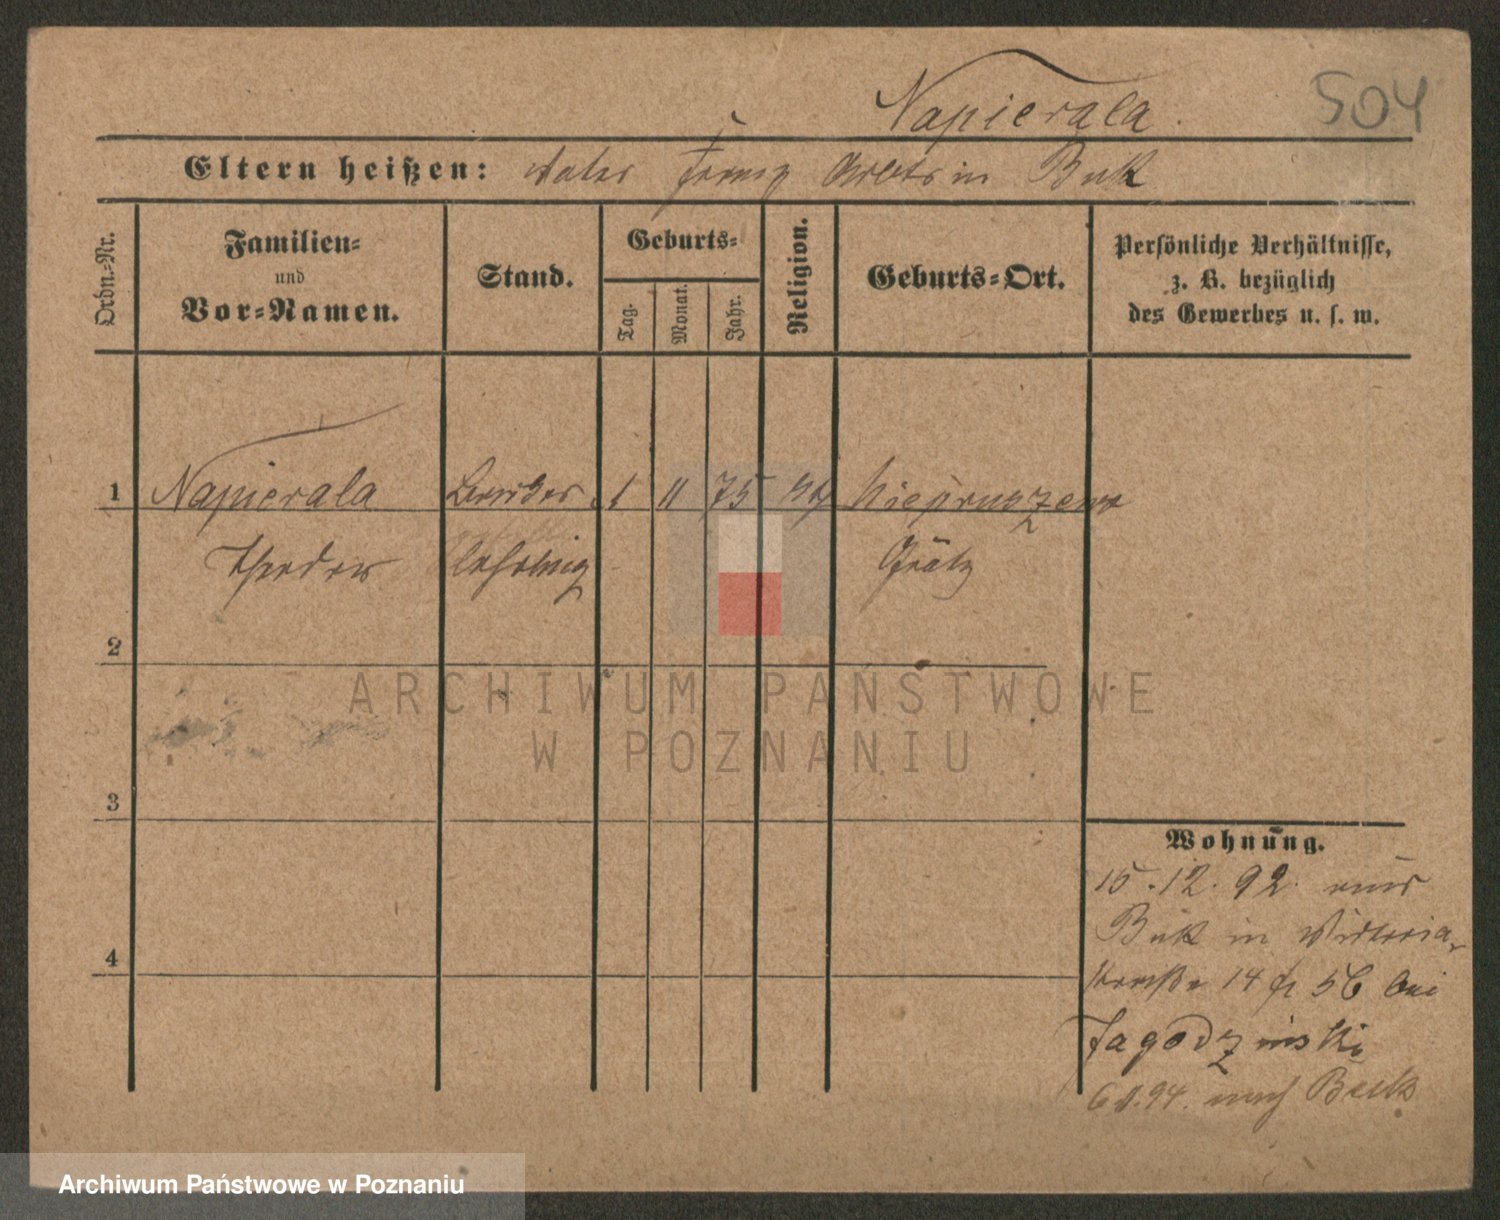 Napierala.
504
Eltern heißen: Vater Franz Arbtr in Buk
Ordn.-Nr.
Familien-
und
Vor-Namen.
Stand.
Geburts-
Tag.
Monat.
Jahr.
Religion.
Geburts-Ort.
Persönliche Verhältnisse,
z. B. bezüglich
des Gewerbes u. s. w.
1
Napierala
1 11 75
Theodor
Grätz
2
3
4
Wohnung.
15.12.92. aus
Buk in Viktoria-
straße 14 bei
Jagodzinski
94. nach Buk
ARCHIWUM PAŃSTWOWE
W POZNANIU
Archiwum Państwowe w Poznaniu